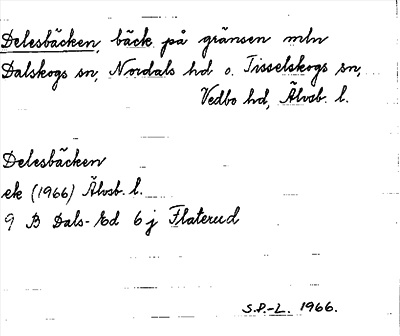 Delesbäcken, bäck på gränsen mln
Dalskogs sn, Nordals hd o. Tisselskogs sn,
Vedbo hd, Älvsb. l.
Delesbäcken
ek (1966) Älvsb. l.
9 B Dals-Ed 6 j Flaterud
S.P.-L. 1966.